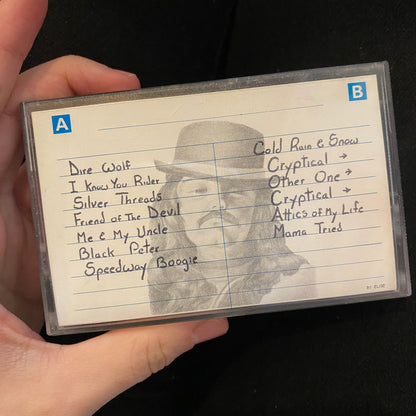 A
B
Dire Wolf
I Know You Rider
Silver Threads
Friend of The Devil
Me & My Uncle
Black Peter
Speedway Boogie
Cold Rain & Snow
Cryptical →
Other One →
Cryptical →
Attics of My Life
Mama Tried